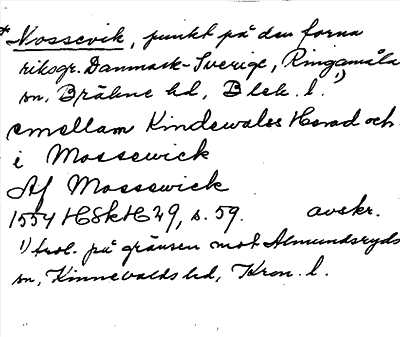 * Mossevik, punkt på den forna
riksgr. Danmark-Sverige, Ringamåla
sn, Bräkne hd, Blek. l. 1)
emellam Kindewales Herad och
i Mossewick
Af Mossewick
1554 HSkH 29, s. 59. avskr.
1) trol. på gränsen mot Almundsryds
sn, Kinnevalds hd, Kron. l.